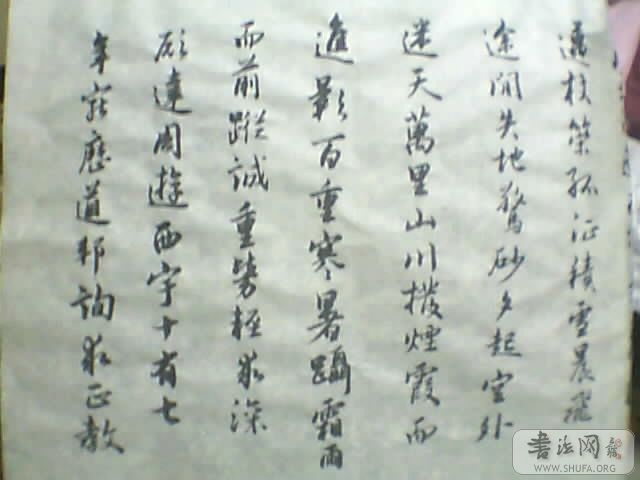 邁杖策孤征積雪晨飛
途間失地驚砂夕起空外
迷天萬里山川撥煙霞而
進影百重寒暑躡霜雨
而前蹤誠重勞輕求深
願達周遊西宇十有七
年窮歷道邦詢求正教
书法网
WWW.SHUFA.ORG